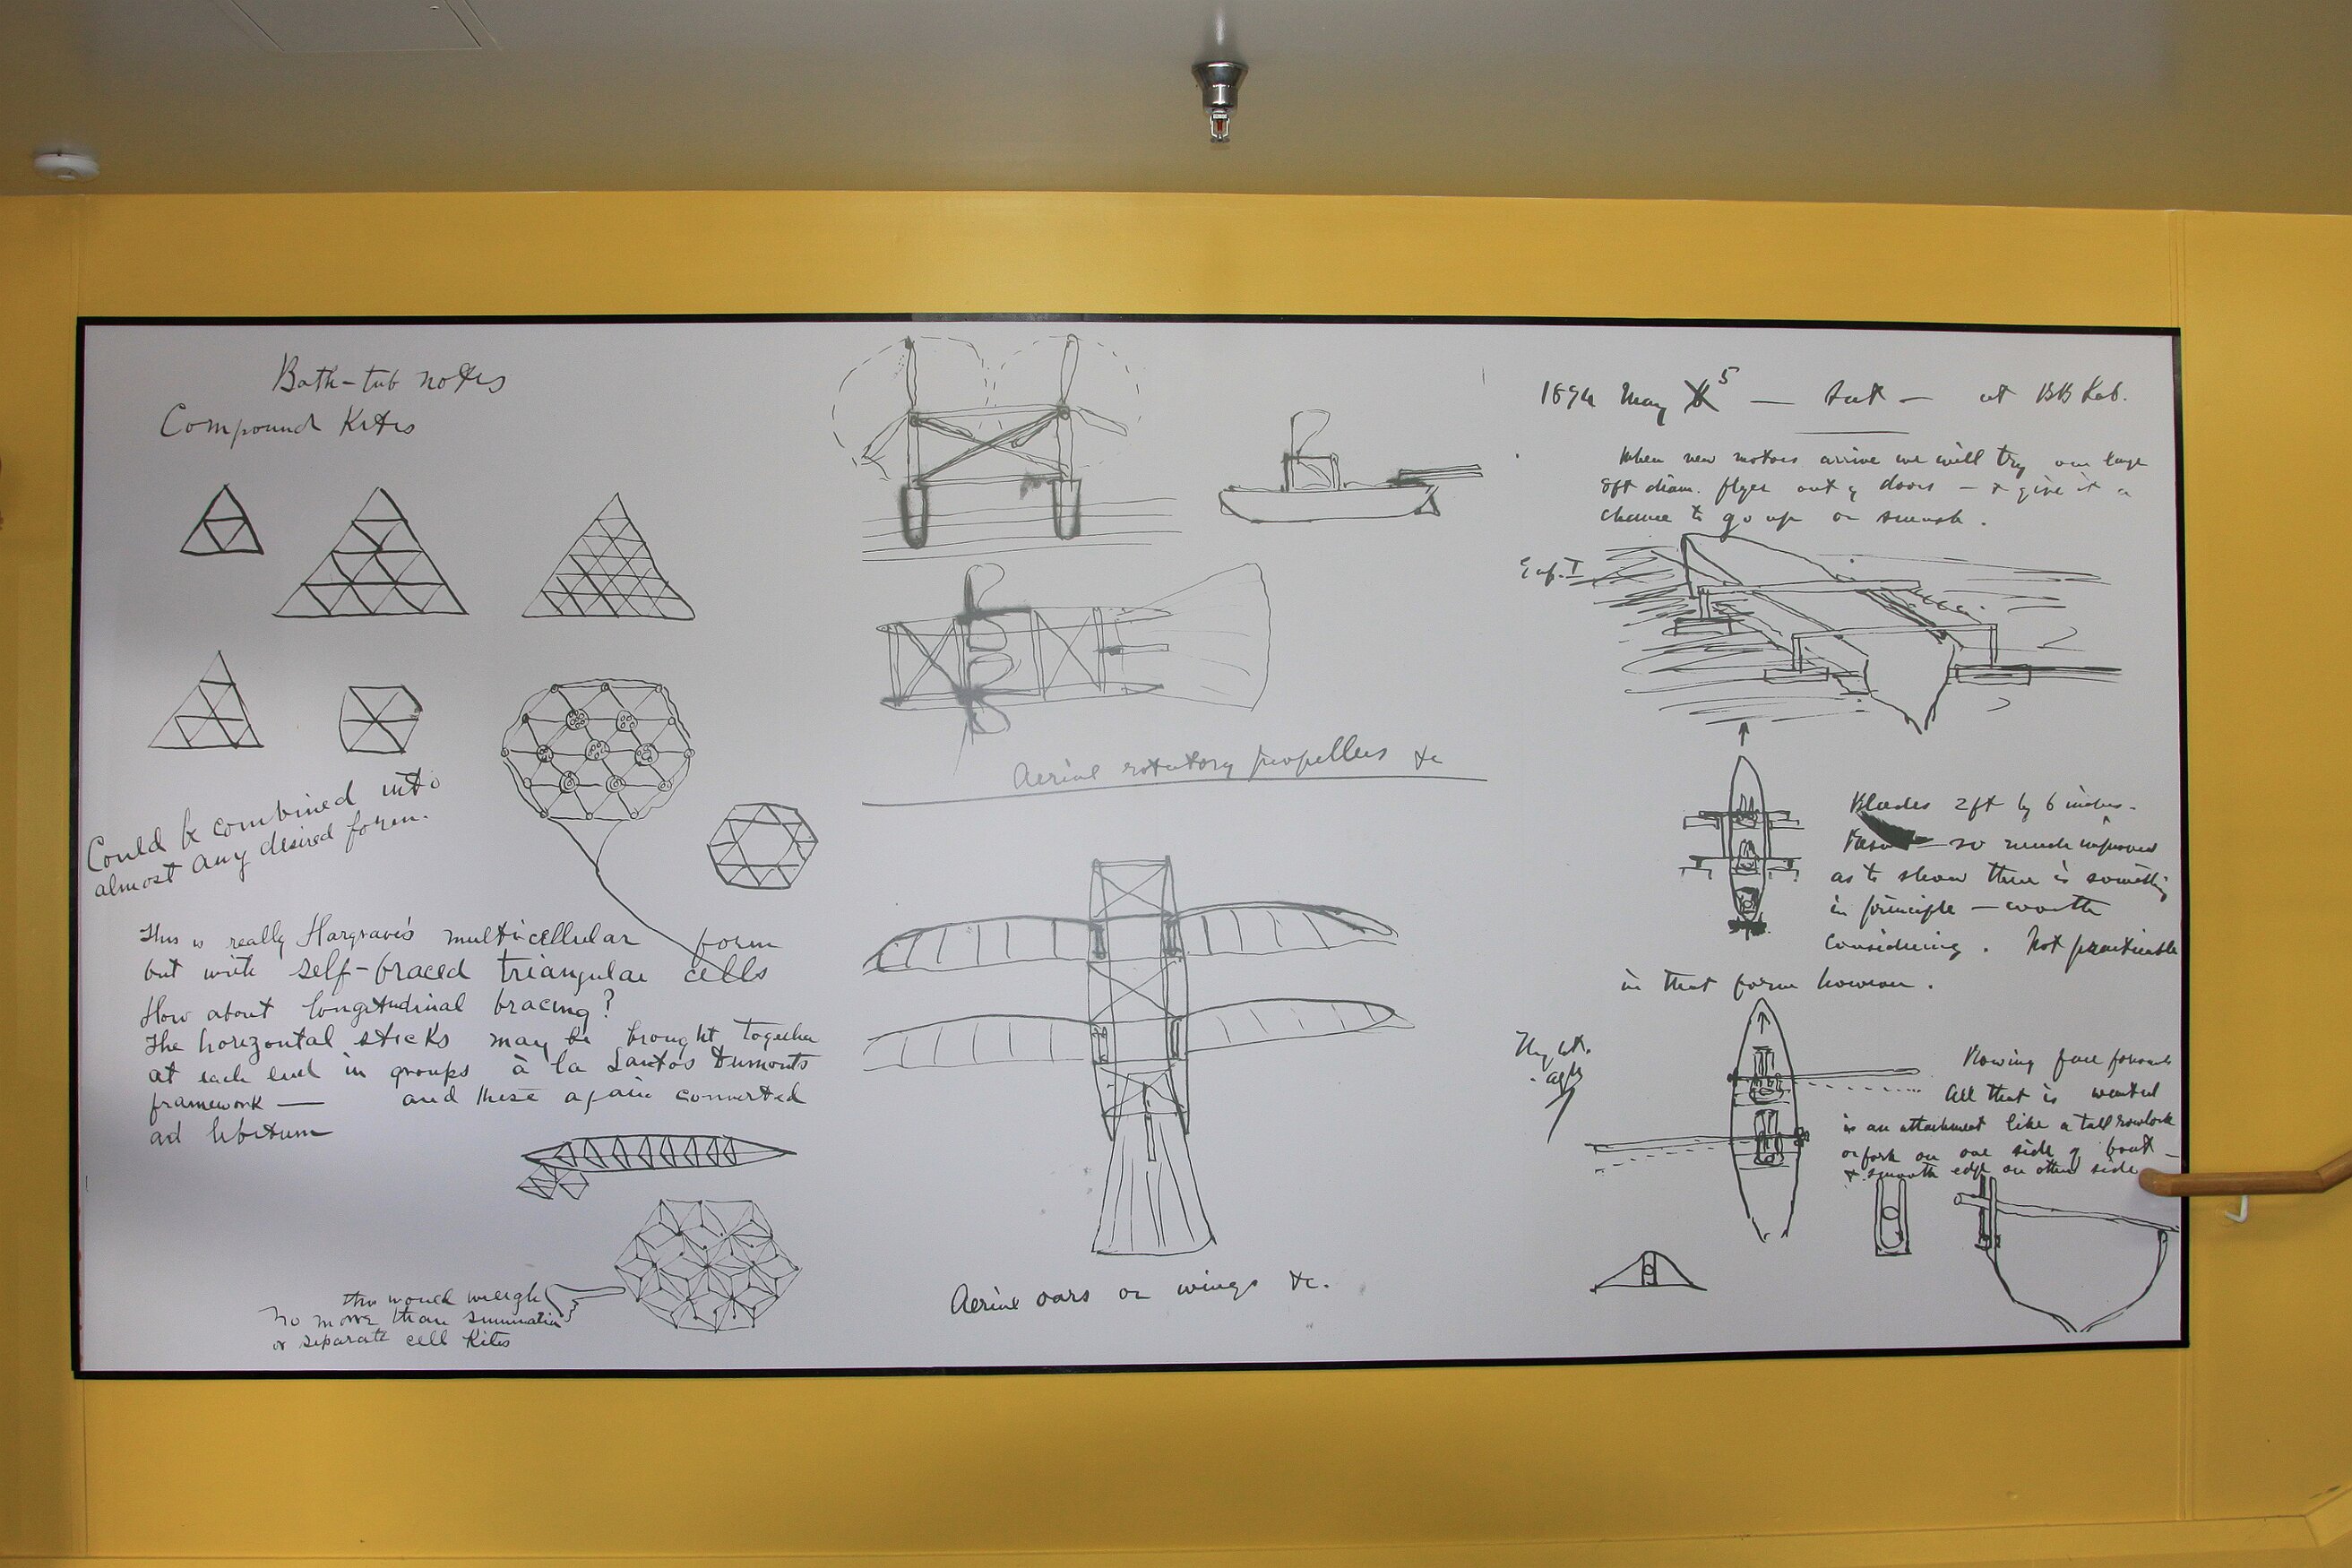 Bath-tub notes
Compound Kites
Could be combined into
almost any desired form.
This is really Hargrave's multicellular form
but with self-braced triangular cells
How about longitudinal bracing?
The horizontal sticks may be brought together
at each end in groups à la Santos Dumont's
framework — and these again connected
ad libitum
this would weigh
no more than summation
or separate cell Kites
Aerial rotatory propellers &c
Aerial oars or wings &c.
1894 May 5 — Sat — at BB Lab.
When new motors arrive we will try our large
8ft diam. flyer out of doors — & give it a
chance to go up or smash.
Exp. I
Blades 2ft by 6 inches —
— so much improved
as to show there is something
in principle — worth
considering. Not practicable
in that form however.
Rowing face forward
All that is wanted
is an attachment like a tall rowlock
or fork on one side of boat —
& smooth edge on other side